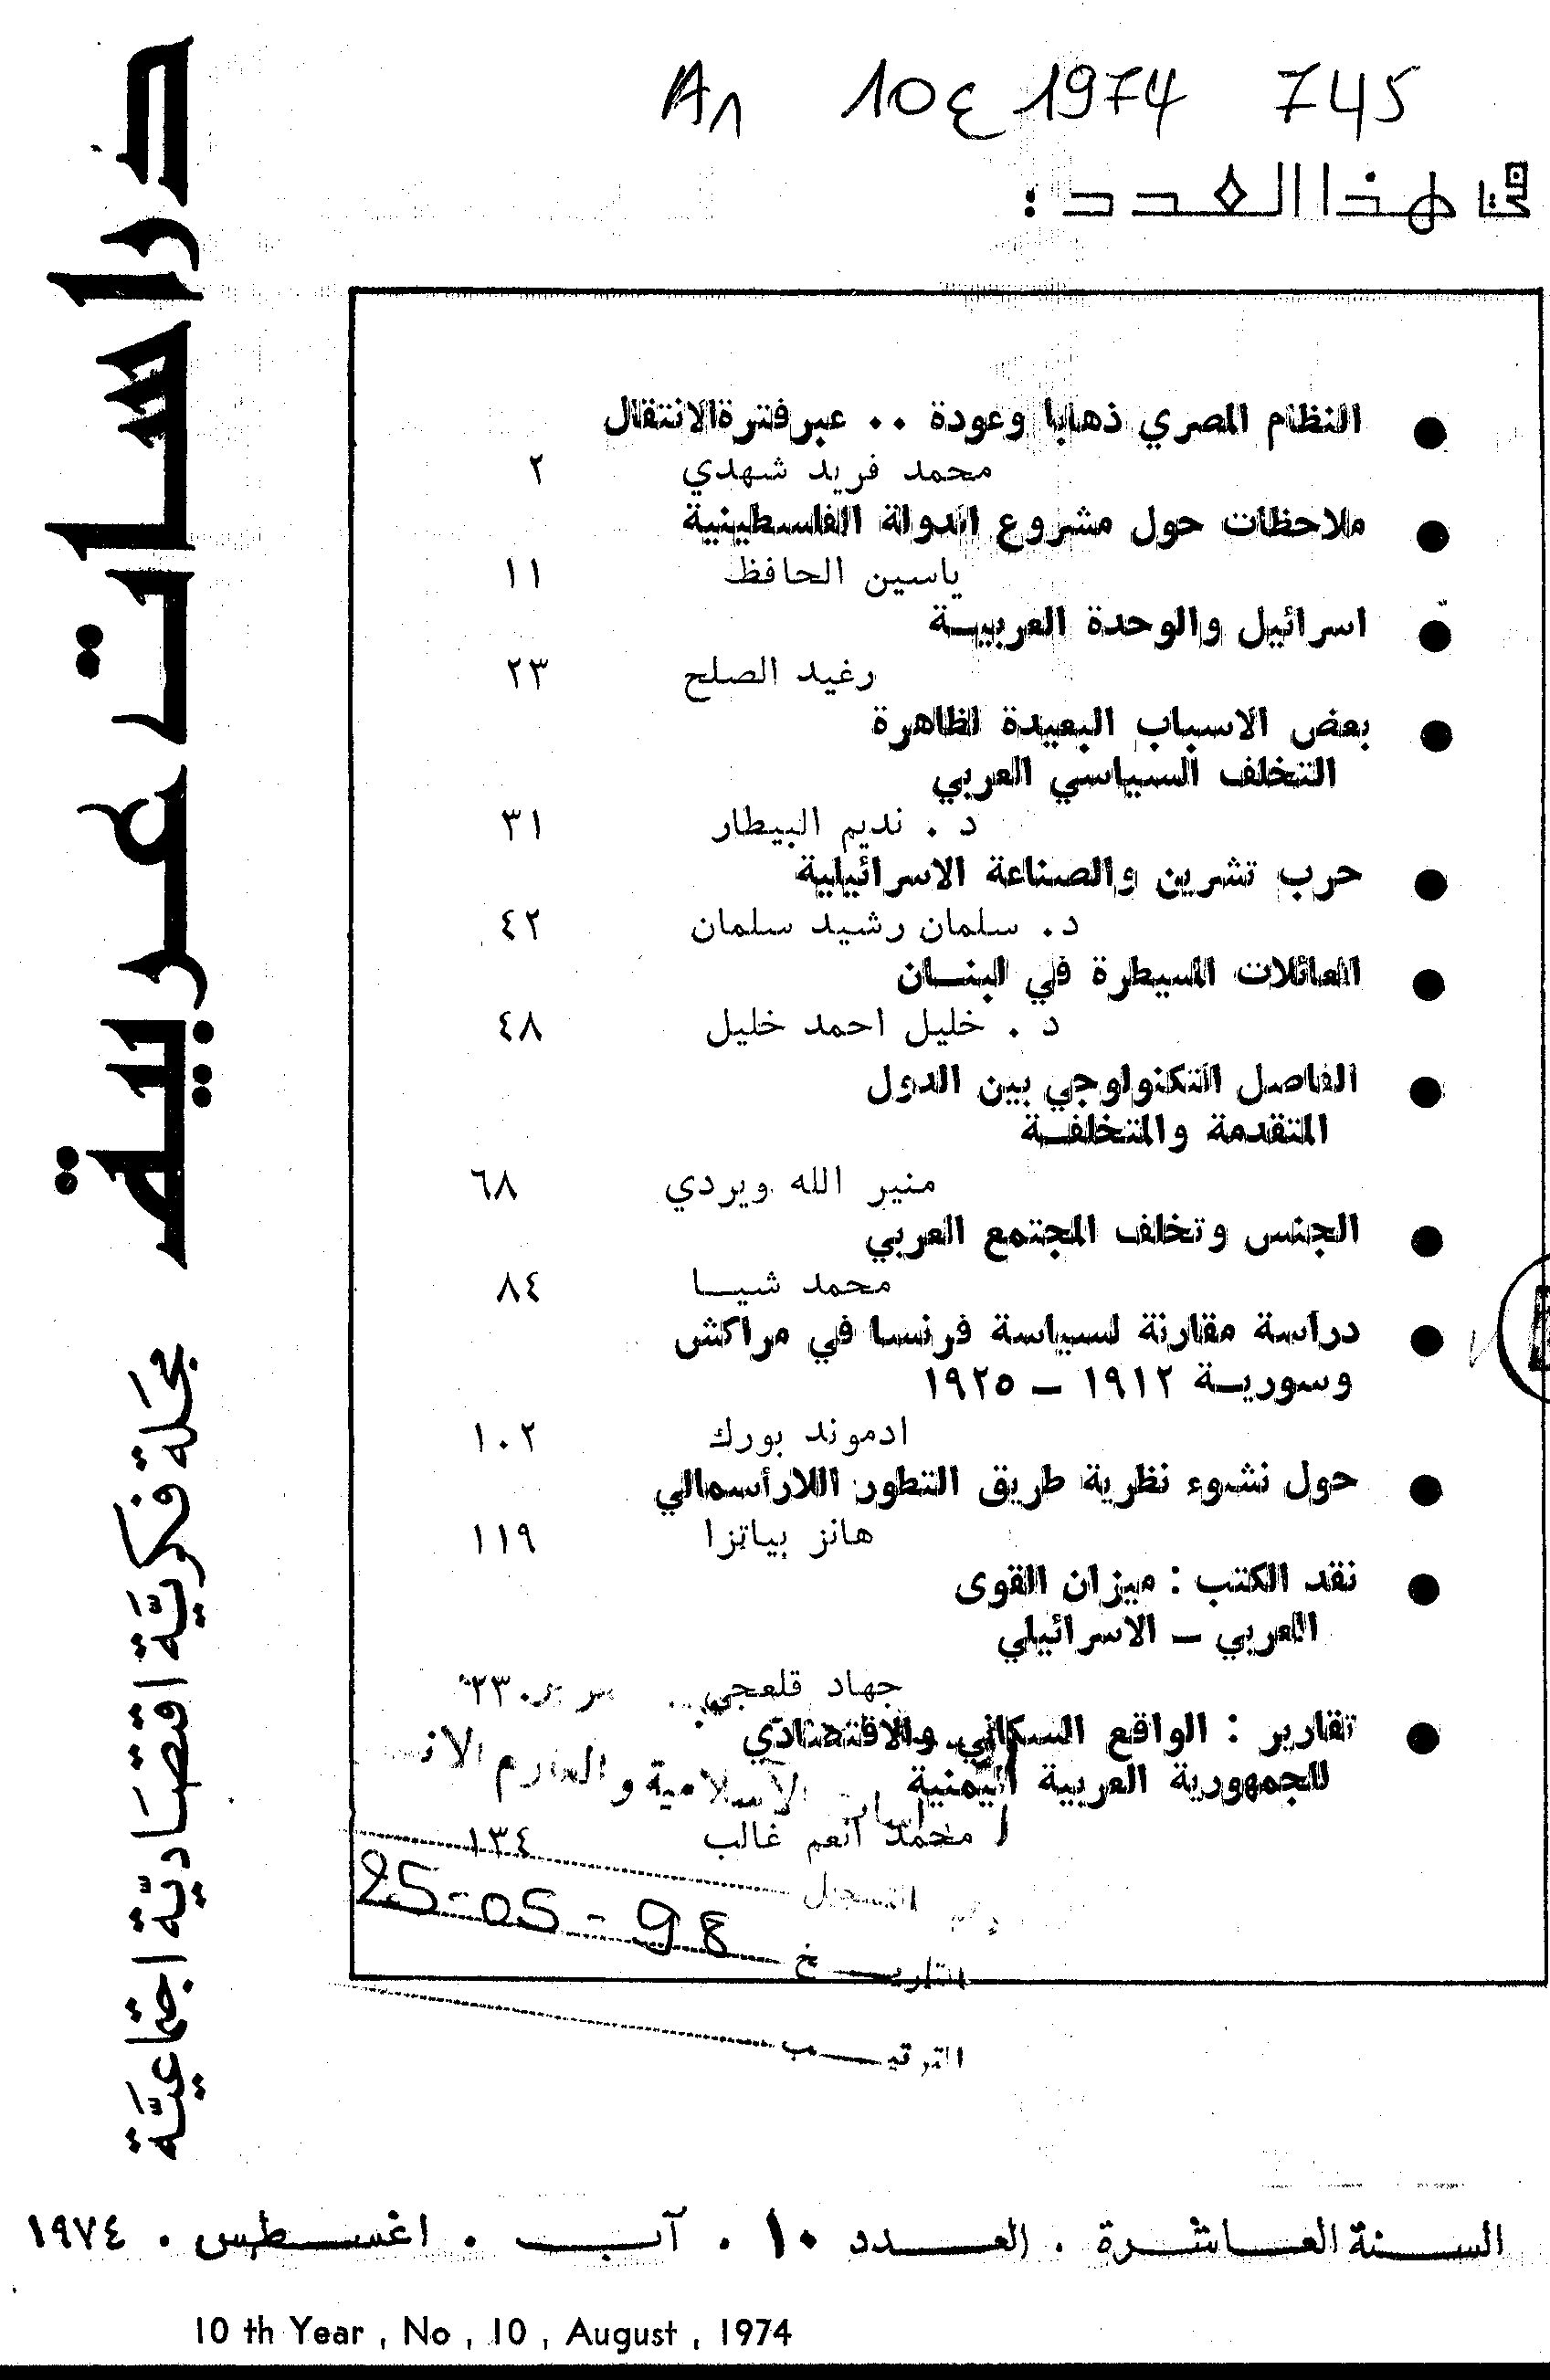 A٨ 10ع 1974 745
في هذا العدد :
دراسات عربية
مجلة فكرية اقتصادية اجتماعية
النظام المصري ذهابا وعودة .. عبر فترة الانتقال
محمد فريد شهدي ٢
ملاحظات حول مشروع الدولة الفلسطينية
ياسين الحافظ ١١
اسرائيل والوحدة العربيـة
رغيد الصلح ٢٣
بعض الاسباب البعيدة لظاهرة
التخلف السياسي العربي
د . نديم البيطار ٣١
حرب تشرين والصناعة الاسرائيلية
د. سلمان رشيد سلمان ٤٢
العائلات المسيطرة في لبنـان
د . خليل احمد خليل ٤٨
الفاصل التكنولوجي بين الدول
المتقدمة والمتخلفـة
منير الله ويردي ٦٨
الجنس وتخلف المجتمع العربي
محمد شيـا ٨٤
دراسة مقارنة لسياسة فرنسا في مراكش
وسوريـة ١٩١٢ – ١٩٢٥
ادموند بورك ١٠٢
حول نشوء نظرية طريق التطور اللارأسمالي
هانز بياتزا ١١٩
نقد الكتب : ميزان القوى
العربي – الاسرائيلي
جهاد قلعجي
تقارير : الواقع السكاني والاقتصادي
للجمهورية العربية اليمنية
الاسلامية و
محمد انعم غالب ١٣٤
التسجيل
25-05-98
التاريـخ
الترتيـب
السنة العـاشـرة . العـدد ١٠ . آب . اغسـطس . ١٩٧٤
10 th Year , No , 10 , August , 1974